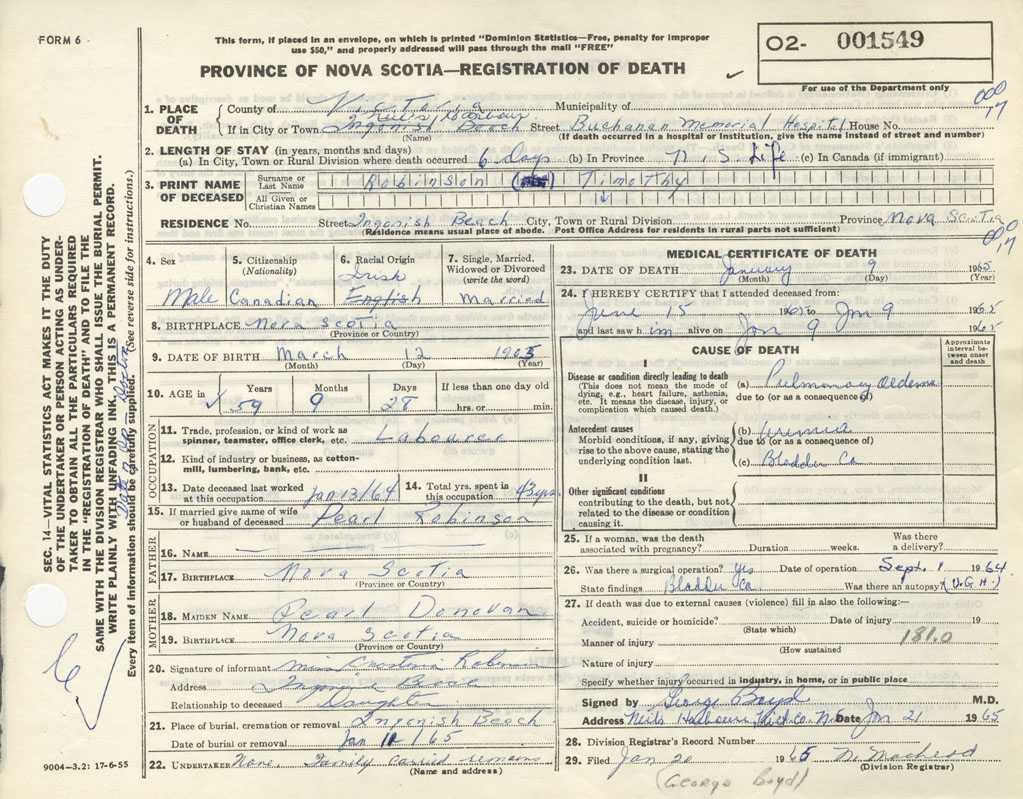 FORM 6
This form, if placed in an envelope, on which is printed "Dominion Statistics—Free, penalty for improper
use $50," and properly addressed will pass through the mail "FREE"
PROVINCE OF NOVA SCOTIA—REGISTRATION OF DEATH
O2- 001549
For use of the Department only
000
17
1. PLACE OF DEATH
County of Victoria Municipality of
Neil's Harbour
If in City or Town Ingonish Beach Street Buchanan Memorial Hospital House No.
(Name) (If death occurred in a hospital or institution, give the name instead of street and number)
2. LENGTH OF STAY (in years, months and days)
(a) In City, Town or Rural Division where death occurred 6 days (b) In Province N. S. Life (c) In Canada (if immigrant)
3. PRINT NAME OF DECEASED
Surname or Last Name Robinson Timothy
All Given or Christian Names
RESIDENCE No. Street Ingonish Beach City, Town or Rural Division Province Nova Scotia
(Residence means usual place of abode. Post Office Address for residents in rural parts not sufficient)
000
17
4. Sex Male
5. Citizenship (Nationality) Canadian
6. Racial Origin Irish English
7. Single, Married, Widowed or Divorced (write the word) Married
8. BIRTHPLACE Nova Scotia
(Province or Country)
9. DATE OF BIRTH March 12 1905
(Month) (Day) (Year)
10. AGE in Years 59 Months 9 Days 28 If less than one day old hrs. or min.
OCCUPATION
11. Trade, profession, or kind of work as spinner, teamster, office clerk, etc. Labourer
12. Kind of industry or business, as cotton-mill, lumbering, bank, etc.
13. Date deceased last worked at this occupation Jan 13/64
14. Total yrs. spent in this occupation 43 yrs
15. If married give name of wife or husband of deceased Pearl Robinson
FATHER
16. NAME
17. BIRTHPLACE Nova Scotia
(Province or Country)
MOTHER
18. MAIDEN NAME Pearl Donovan
19. BIRTHPLACE Nova Scotia
(Province or Country)
20. Signature of informant Miss Robinson
Address Ingonish Beach
Relationship to deceased Daughter
21. Place of burial, cremation or removal Ingonish Beach
Date of burial or removal Jan 11/65
22. UNDERTAKER None. Family carried remains
(Name and address)
MEDICAL CERTIFICATE OF DEATH
23. DATE OF DEATH January 9 1965
(Month) (Day) (Year)
24. I HEREBY CERTIFY that I attended deceased from:
June 15 196 to Jan 9 1965
and last saw him alive on Jan 9 1965
CAUSE OF DEATH
Approximate interval between onset and death
I
Disease or condition directly leading to death
(This does not mean the mode of dying, e.g., heart failure, asthenia, etc. It means the disease, injury, or complication which caused death.)
(a) Pulmonary Oedema
due to (or as a consequence of)
Antecedent causes
Morbid conditions, if any, giving rise to the above cause, stating the underlying condition last.
(b) Uremia
due to (or as a consequence of)
(c) Bladder Ca
II
Other significant conditions
contributing to the death, but not related to the disease or condition causing it.
25. If a woman, was the death associated with pregnancy? Duration weeks. Was there a delivery?
26. Was there a surgical operation? Yes Date of operation Sept. 1 1964
State findings Bladder Ca Was there an autopsy? (V.G.H.)
27. If death was due to external causes (violence) fill in also the following:—
Accident, suicide or homicide? Date of injury 19
(State which)
Manner of injury 181.0
(How sustained)
Nature of injury
Specify whether injury occurred in industry, in home, or in public place
Signed by George Boyd M.D.
Address Neil's Harbour, Vict. Co. N.S. Date Jan 21 1965
28. Division Registrar's Record Number
29. Filed Jan 20 1965 N. MacLeod
(Division Registrar)
(George Boyd)
SEC. 14—VITAL STATISTICS ACT MAKES IT THE DUTY
OF THE UNDERTAKER OR PERSON ACTING AS UNDER-
TAKER TO OBTAIN ALL THE PARTICULARS REQUIRED
IN THE "REGISTRATION OF DEATH" AND TO FILE THE
SAME WITH THE DIVISION REGISTRAR WHO SHALL ISSUE THE BURIAL PERMIT.
WRITE PLAINLY WITH UNFADING INK. THIS IS A PERMANENT RECORD.
Every item of information should be carefully supplied. (See reverse side for instructions.)
9004-3.2: 17-6-55